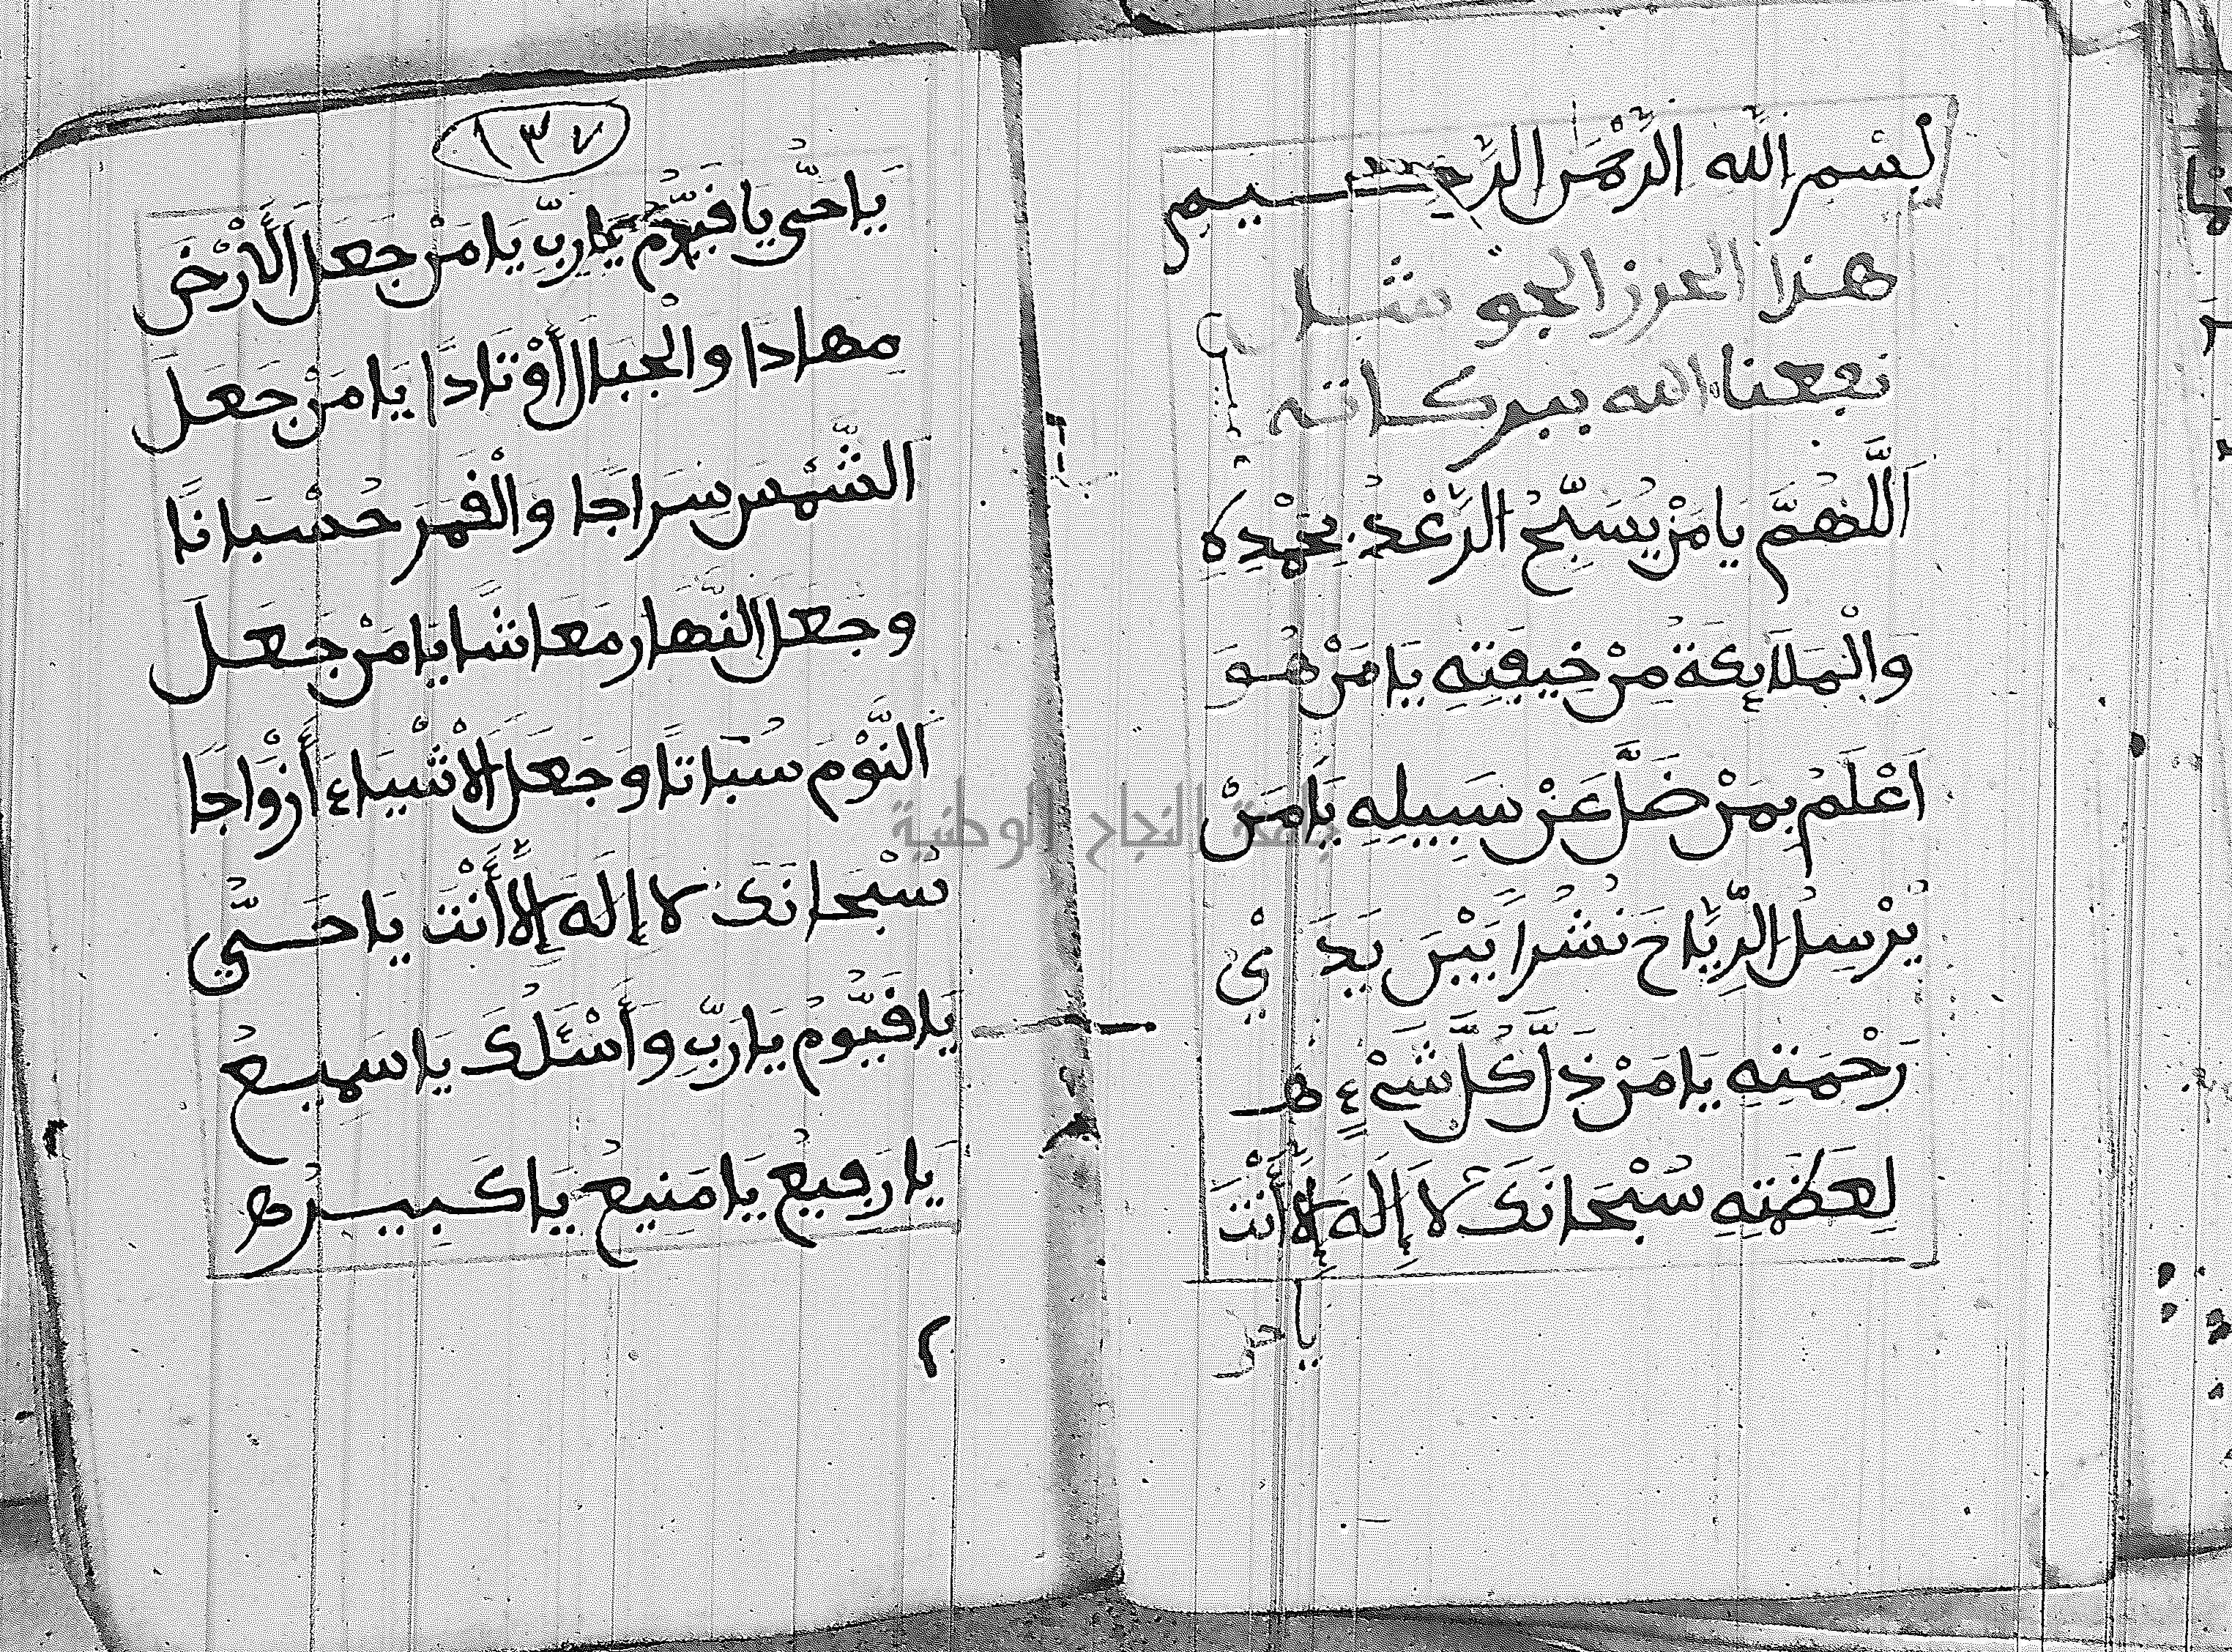 بسم الله الرحمن الرحيم
هذا الحرز الجوشن
نفعنا الله ببركاته
اَللَّهُمَّ يَا مَنْ يُسَبِّحُ الرَّعْدُ بِحَمْدِهِ
وَالْمَلَايِكَةُ مِنْ خِيفَتِهِ يَا مَنْ هُوَ
اَعْلَمُ بِمَنْ ضَلَّ عَنْ سَبِيلِهِ يَا مَنْ
يُرْسِلُ الرِّيَاحَ نُشُرًا بَيْنَ يَدَيْ
رَحْمَتِهِ يَا مَنْ ذَلَّ كُلُّ شَيْءٍ
لِعَظَمَتِهِ سُبْحَانَكَ لَا إِلَهَ إِلَّا أَنْتَ
يا حي
١٣٧
يا حَيُّ يَا قَيُّومُ يَا رَبِّ يَا مَنْ جَعَلَ الْأَرْضَ
مهادًا والْجبَالَ أَوْتَادًا يَا مَنْ جَعَلَ
الشَّمْسَ سِرَاجًا وَالْقَمَرَ حُسْبَانًا
وَجَعَلَ النَّهَارَ مَعَاشًا يَا مَنْ جَعَلَ
النَّوْمَ سُبَاتًا وَجَعَلَ الْأَشْيَاءَ أَزْوَاجًا
سُبْحَانَكَ لا إِلَهَ إِلَّا أَنْتَ يَا حَيُّ
يَا قَيُّومُ يَا رَبِّ وَأَسْئَلُكَ يَا سَمِيعُ
يَا رَفِيعُ يَا مَنِيعُ يَا كَبِيرُ
٢
جامعة النجاح الوطنية